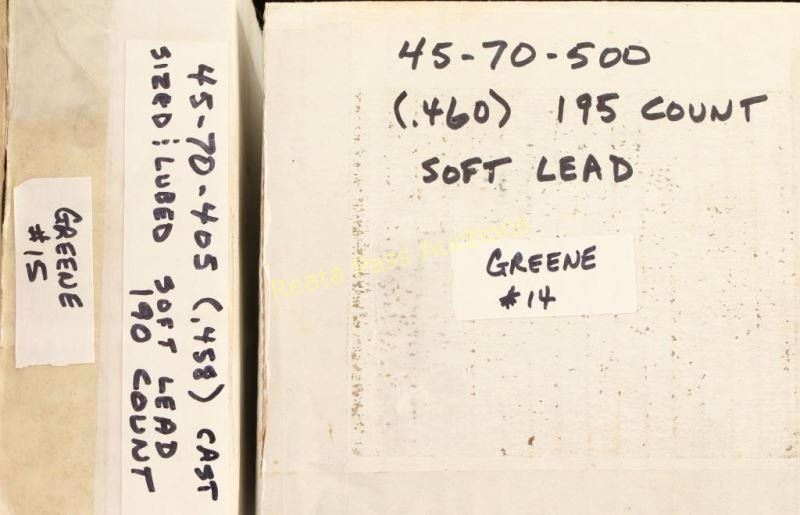 GREENE
#15
45-70-405 (.458) CAST
SIZED; LUBED SOFT LEAD
190 COUNT
45-70-500
(.460) 195 COUNT
SOFT LEAD
GREENE
#14
Reata Pass Auctions